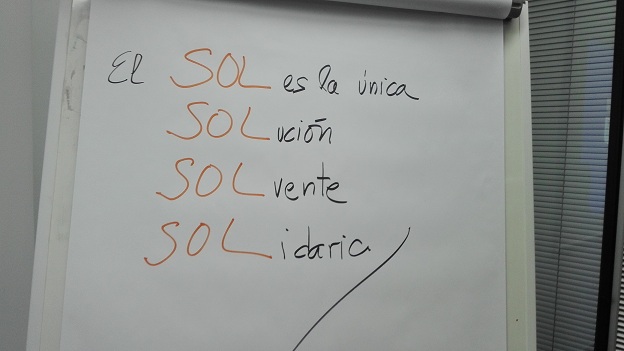 El SOL es la única
SOLución
SOLvente
SOLidaria